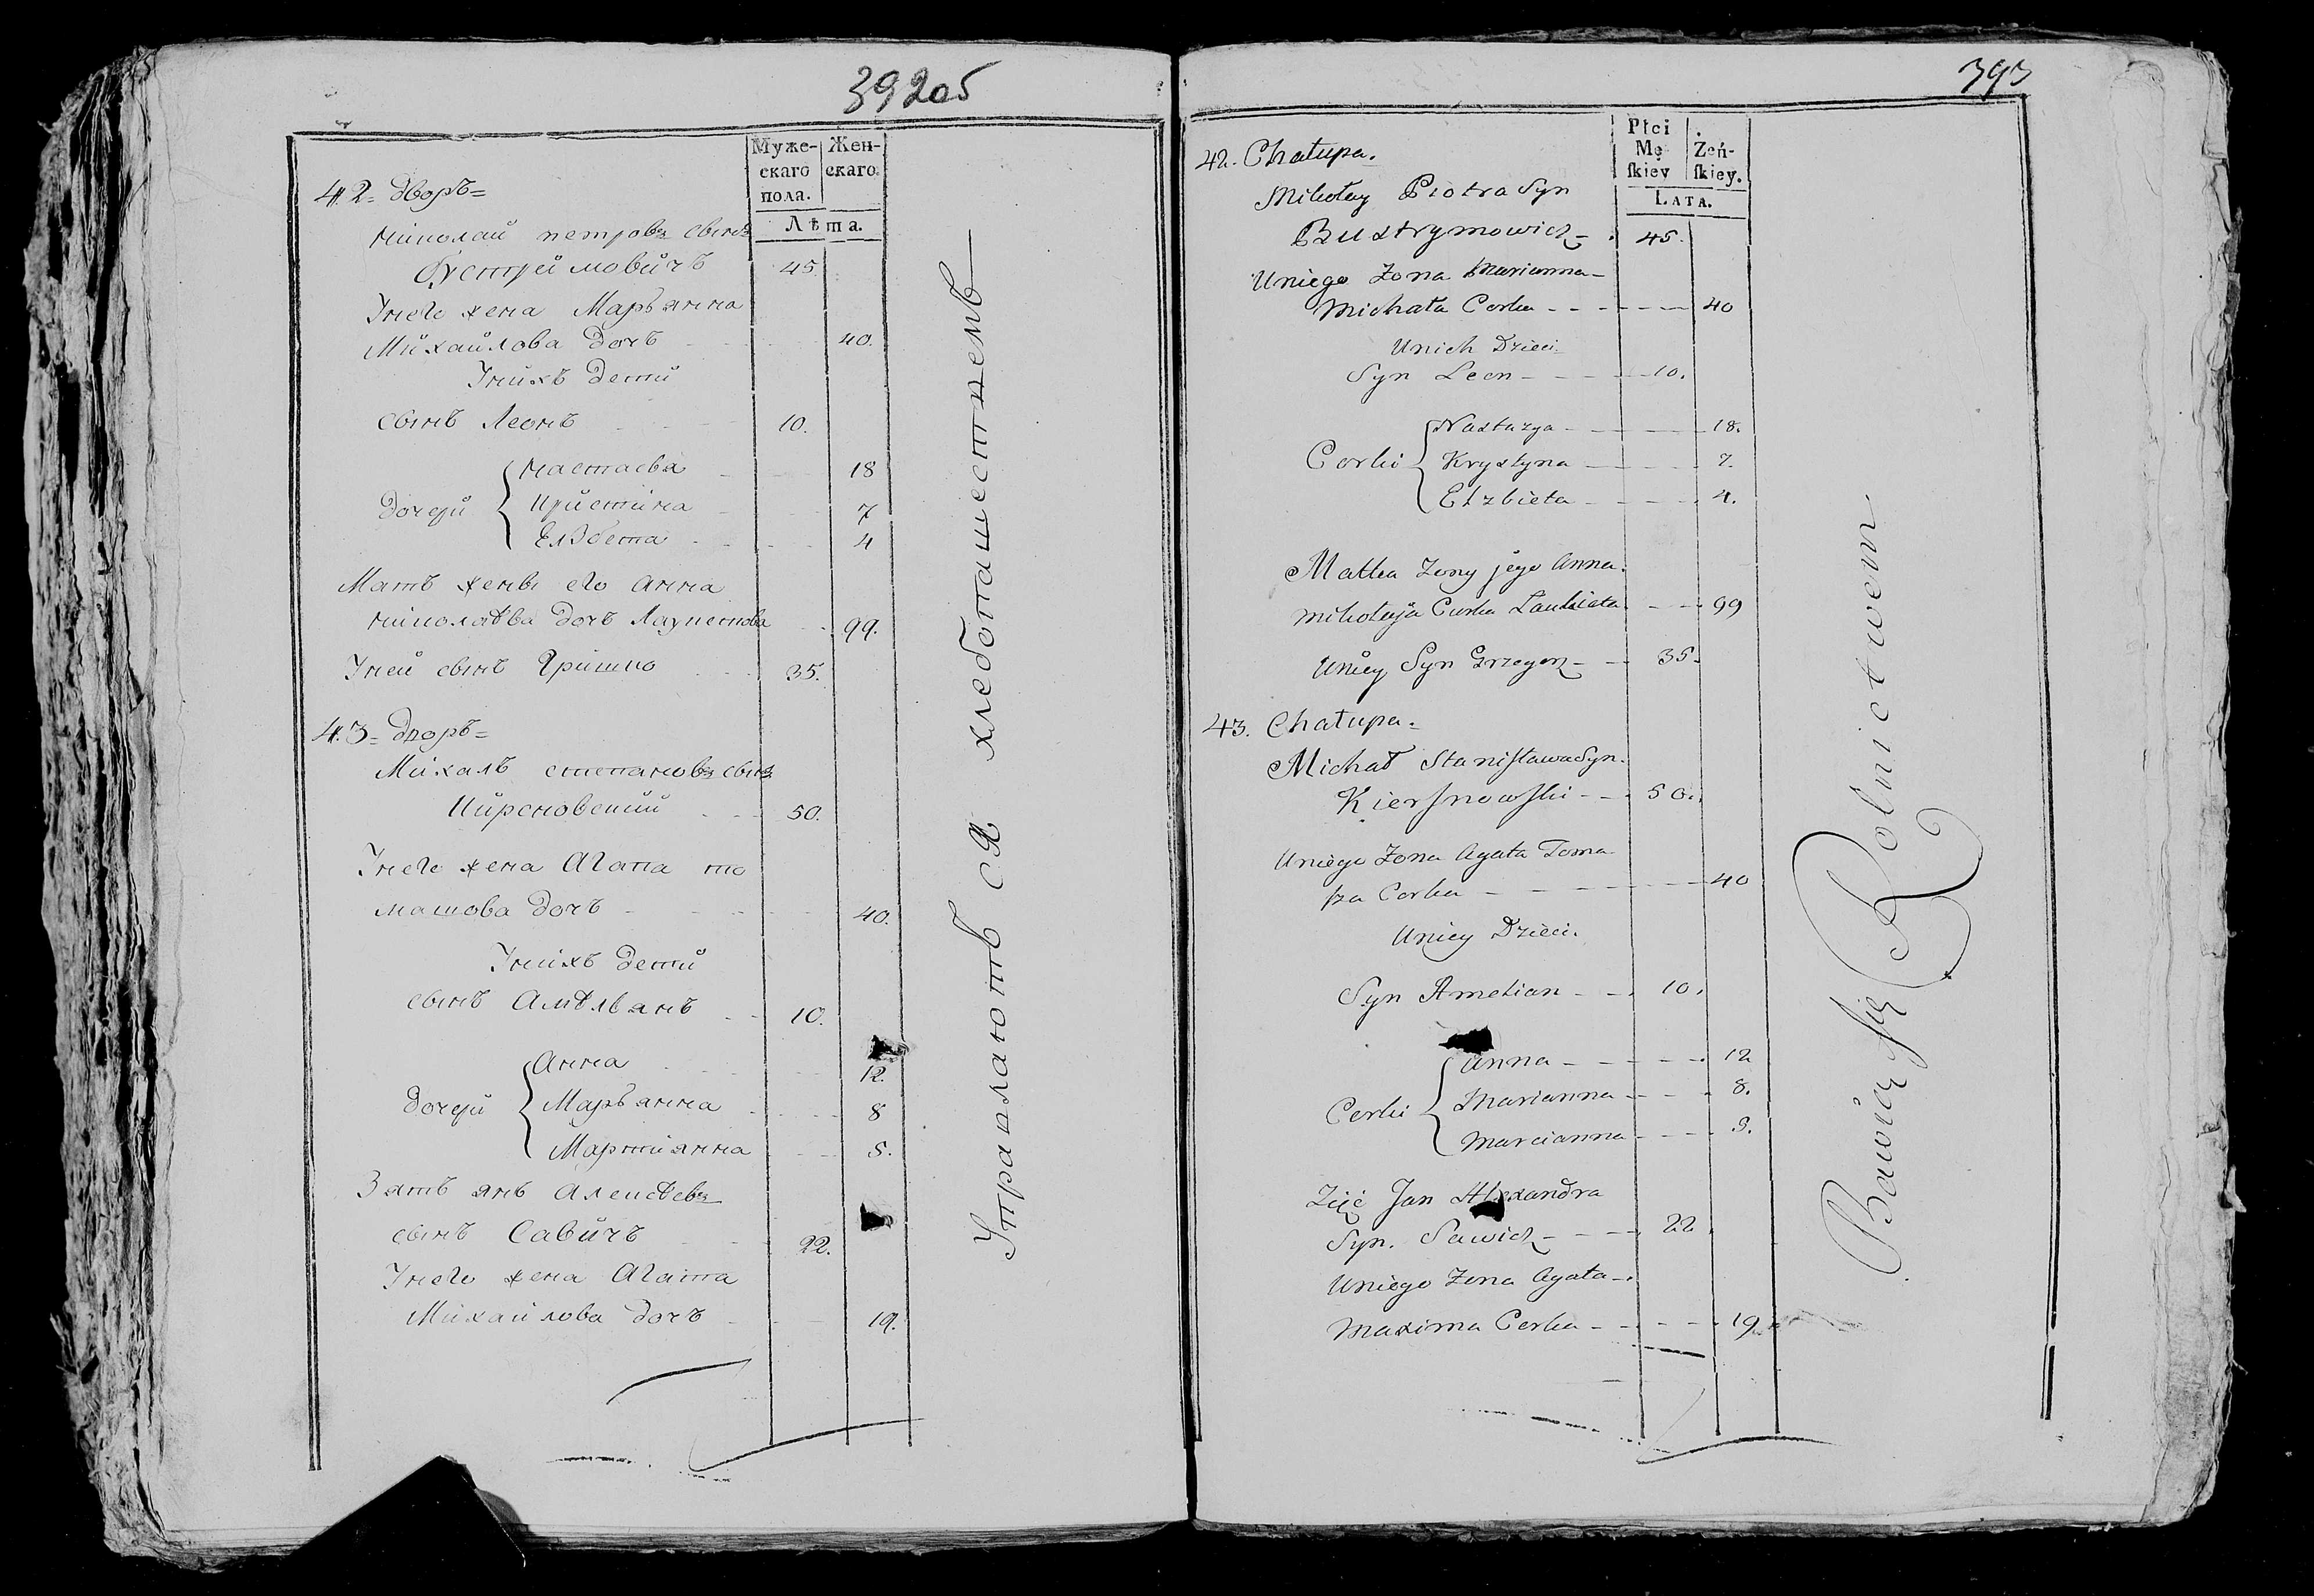 392об
Муже-
скаго
пола.
Жен-
скаго.
Лѣта.
42 = Дворъ =
Николай петровъ сынъ
Быстримовичъ 45
Унего жена Марьянна
Михайлова дочь 40.
Унихъ дети
сынъ Леонъ 10.
дочери
Настасья 18
Кристина 7
Елзбета 4
Мать жены его Анна
Николаева дочь 99.
Уней сынъ Гришко 35.
43 = Дворъ =
Михалъ степановъ сынъ
Кирсновский 50.
Унего жена Агата то
машова дочь 40.
Унихъ дети
сынъ Амельянъ 10.
дочери
Анна 12.
Марьянна 8
Мартиянна 5.
Зять янъ Алексѣевъ
сынъ Савичъ 22.
Унего жена Агата
Михайлова дочь 19.
Упражняются хлебопашествемъ
393
Płci
Mę
ſkiey
Zeń-
ſkiey.
LATA.
42. Chałupa.
Mikołay Piotra Syn
Bustrymowicz 45.
Uniego Zona Marianna
Michała Corka 40
Unich Dzieci
Syn Leon 10.
Corki
Nastazya 18.
Krystyna 7.
Elzbieta 4.
Matka Zony jego Anna.
Mikołaja Curka 99
Uniey Syn Grzegorz 35.
43. Chałupa.
Michał Staniſława Syn.
Kierſnowſki 50.
Uniego Zona Agata Toma
ſza Corka 40
Uniey Dzieci.
Syn Amelian 10.
Corki
Anna 12
Marianna 8.
Marcianna 5.
Zięć Jan Alexandra
Syn. Sawicz 22
Uniego Zona Agata
Maxima Corka 19
Bawią ſię Rolnictwem